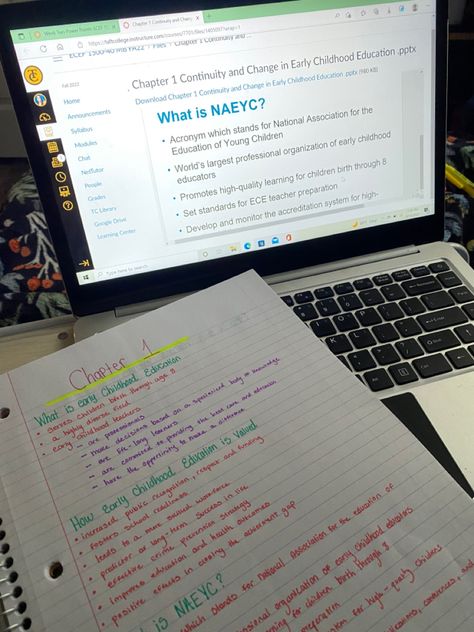 Week Two Power Points: ECEP 15
Chapter 1 Continuity and Chang
https://taftcollege.instructure.com/courses/
Files
Chapter 1 Continuity and
Fall 2022
Home
Announcements
Syllabus
Modules
Chat
NetTutor
People
Grades
TC Library
Google Drive
Learning Center
Chapter 1 Continuity and Change in Early Childhood Education .pptx
Download Chapter 1 Continuity and Change in Early Childhood Education .pptx (980 KB)
What is NAEYC?
• Acronym which stands for National Association for the
Education of Young Children
• World's largest professional organization of early childhood
educators
• Promotes high-quality learning for children birth through 8
• Set standards for ECE teacher preparation
• Develop and monitor the accreditation system for high-
Type here to search
Chapter 1
What is early Childhood Education
• serves children birth through age 8
• a highly diverse field
• early childhood teachers
- are professionals
- make decisions based on a specialized body of knowledge
- are life-long learners
- are committed to providing the best care and education
- have the opportunity to make a difference
How Early Childhood Education is Valued
• increased public recognition, respect and funding
• fosters school readiness
• leads to a more skilled workforce
• predictor of long-term success in life
• effective crime prevention strategy
• improves education and health outcomes
• positive effects in closing the achievement gap
is NAEYC?
which stands for national association for the education of
organization of early childhood educators
for children birth through 8
preparation
for high-quality